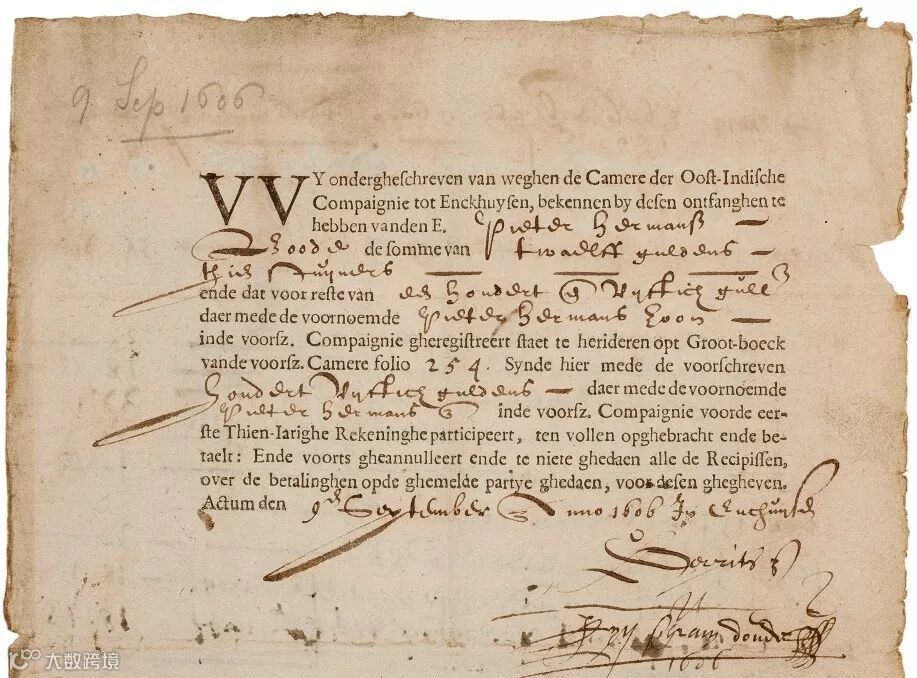 9 Sep 1606
VVY ondergheschreven van weghen de Camere der Oost-Indische
Compaignie tot Enckhuysen, bekennen by desen ontfanghen te
hebben vanden E. Pieter Hermansz
de somme van twaelff guldens
thien stuyvers
ende dat voor reste van een hondert vyftich gull
daer mede de voornoemde Pieter Hermans zoon
inde voorsz. Compaignie gheregistreert staet te herideren opt Groot-boeck
vande voorsz. Camere folio 254. Synde hier mede de voorschreven
hondert vyftich guldens daer mede de voornoemde
Pieter Hermans inde voorsz. Compaignie voorde eer-
ste Thien-Iarighe Rekeninghe participeert, ten vollen opghebracht ende be-
taelt: Ende voorts gheannulleert ende te niete ghedaen alle de Recipissen,
over de betalinghen opde ghemelde partye ghedaen, voor desen ghegheven.
Actum den 9en September Anno 1606 In Enchuysen
Gerritsz
1606
大数跨境